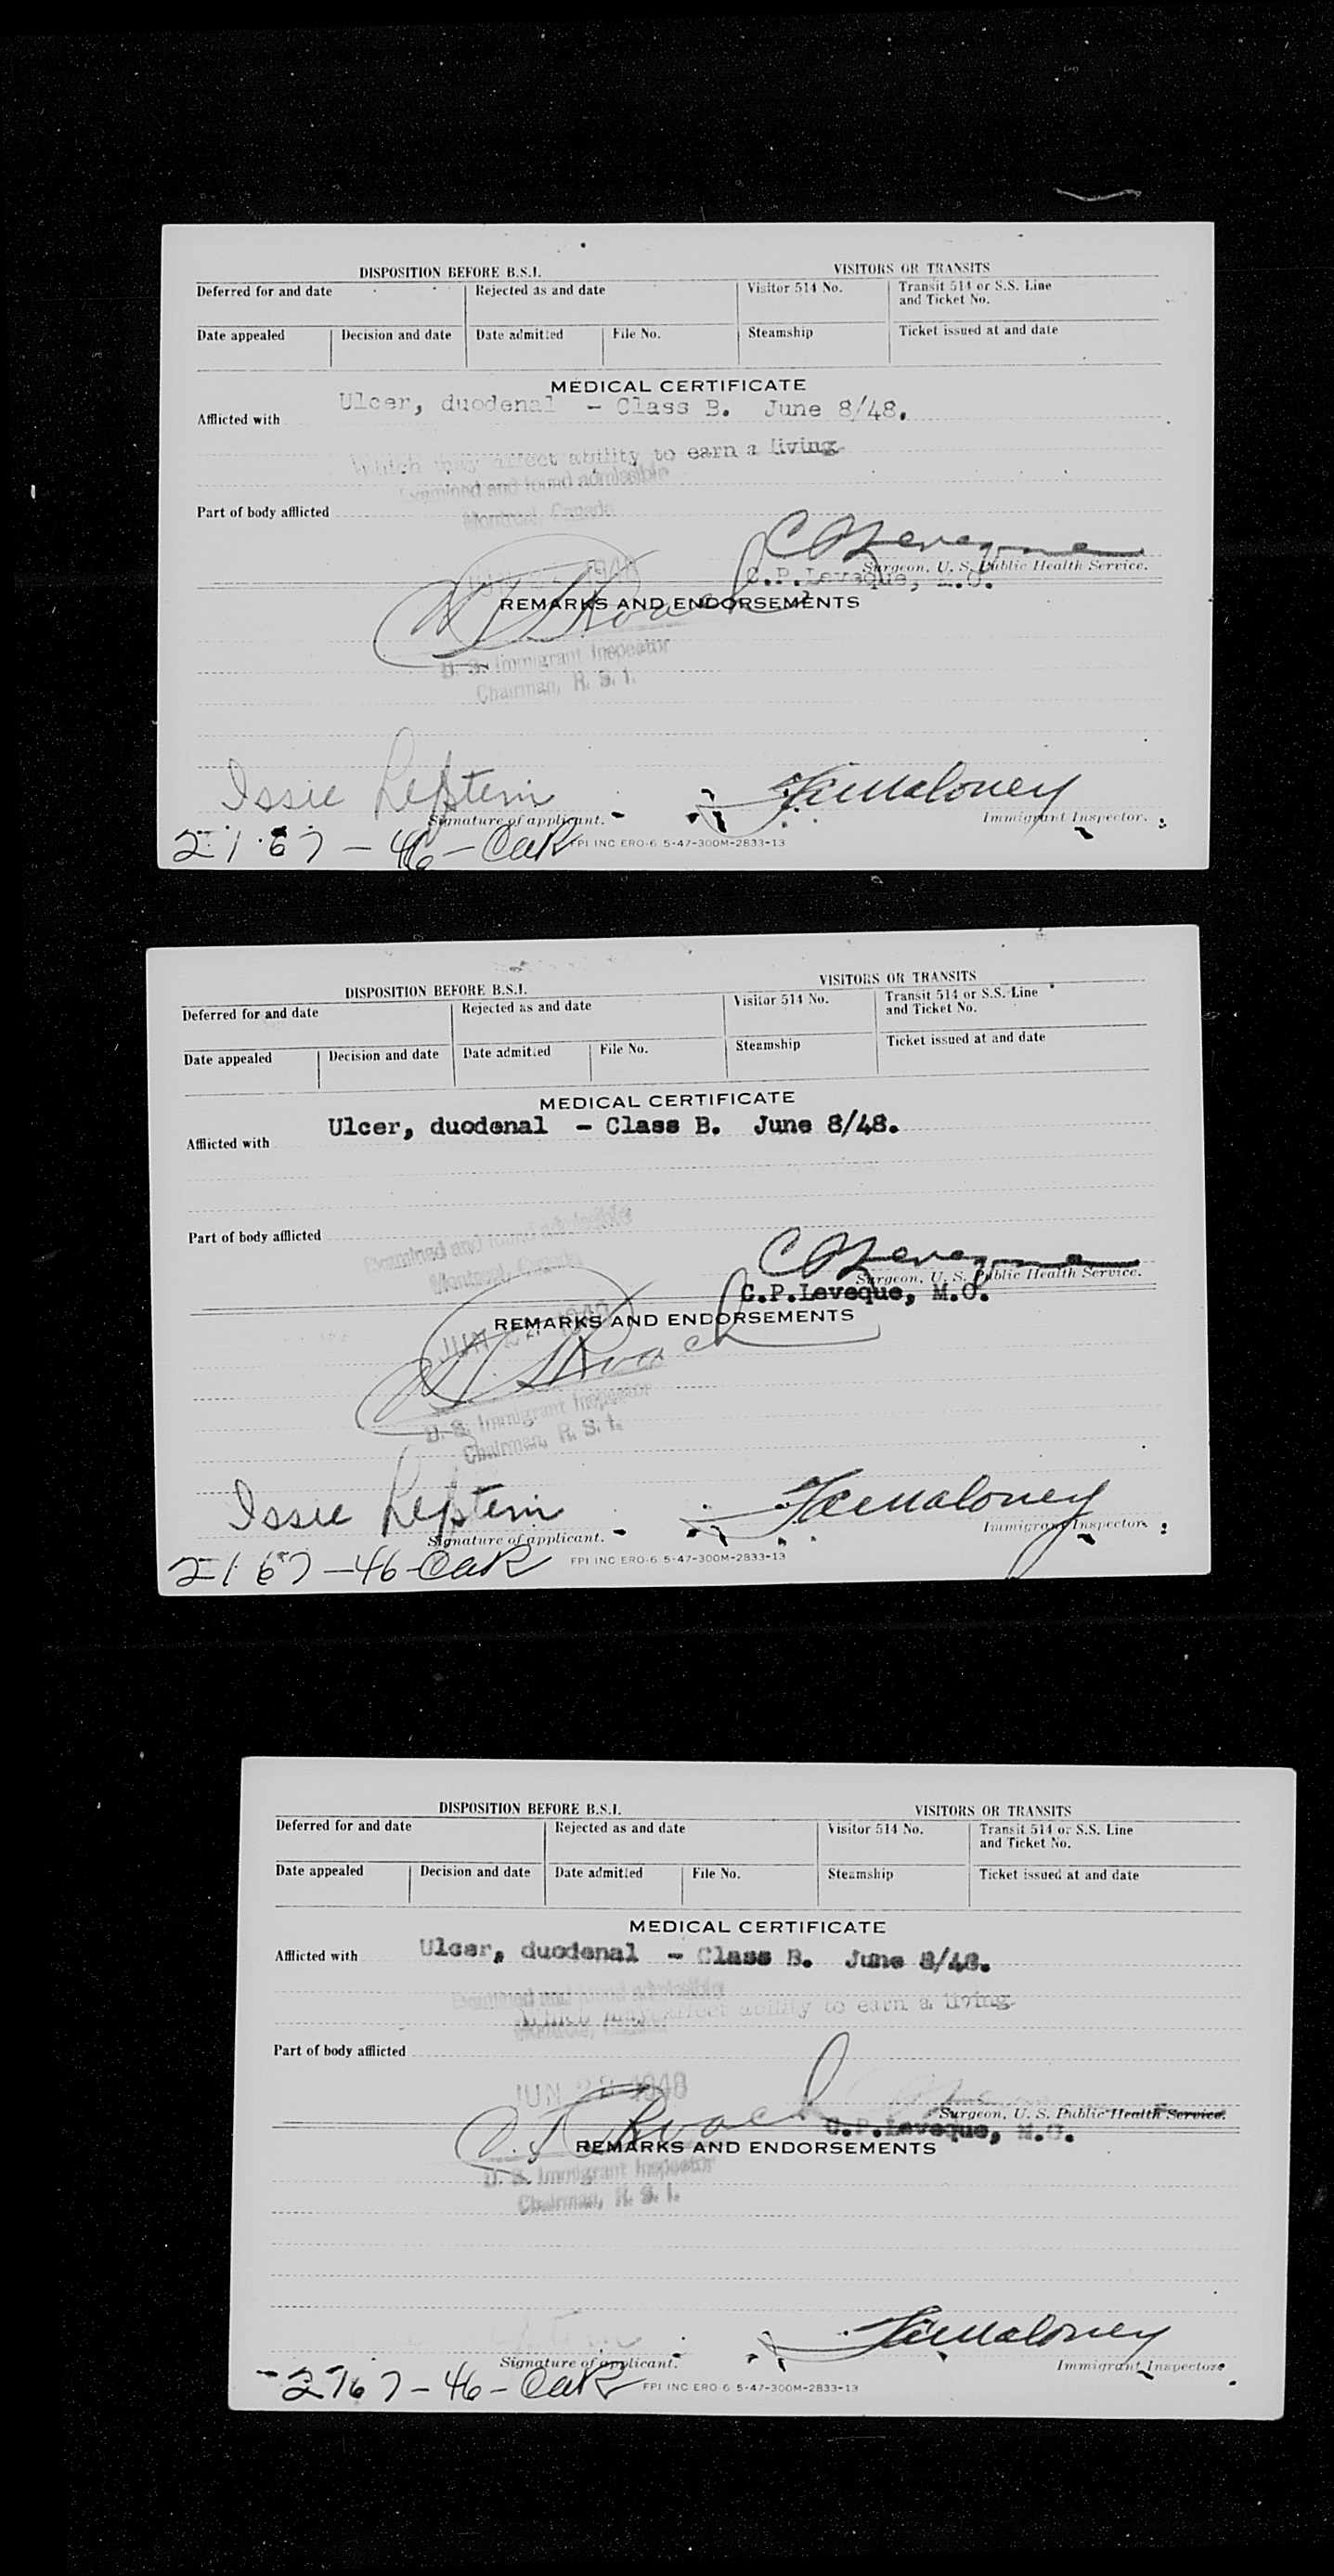 DISPOSITION BEFORE B.S.I. VISITORS OR TRANSITS
Deferred for and date Rejected as and date Visitor 514 No. Transit 514 or S.S. Line
and Ticket No.
Date appealed Decision and date Date admitted File No. Steamship Ticket issued at and date
MEDICAL CERTIFICATE
Afflicted with Ulcer, duodenal - Class B. June 8/48.
Which may affect ability to earn a living
Examined and found admissible
Part of body afflicted Montreal, Canada
Surgeon, U. S. Public Health Service.
C.P.Leveque, M.O.
REMARKS AND ENDORSEMENTS
U. S. Immigrant Inspector
Chairman, B. S. I.
Issie Lepstein Maloney
Signature of applicant. Immigrant Inspector.
2767-46-Oak FPI INC ERO-6 5-47-300M-2833-13
DISPOSITION BEFORE B.S.I. VISITORS OR TRANSITS
Deferred for and date Rejected as and date Visitor 514 No. Transit 514 or S.S. Line
and Ticket No.
Date appealed Decision and date Date admitted File No. Steamship Ticket issued at and date
MEDICAL CERTIFICATE
Afflicted with Ulcer, duodenal - Class B. June 8/48.
Part of body afflicted
Examined and found admissible
Montreal, Canada
Surgeon, U. S. Public Health Service.
C.P.Leveque, M.O.
REMARKS AND ENDORSEMENTS
U. S. Immigrant Inspector
Chairman, B. S. I.
Issie Lepstein Maloney
Signature of applicant. Immigrant Inspector.
2167-46-Oak FPI INC ERO-6 5-47-300M-2833-13
DISPOSITION BEFORE B.S.I. VISITORS OR TRANSITS
Deferred for and date Rejected as and date Visitor 514 No. Transit 514 or S.S. Line
and Ticket No.
Date appealed Decision and date Date admitted File No. Steamship Ticket issued at and date
MEDICAL CERTIFICATE
Afflicted with Ulcer, duodenal - Class B. June 8/48.
Examined and found admissible
Which may affect ability to earn a living
Part of body afflicted
JUN 22 1948
Surgeon, U. S. Public Health Service.
C.P.Leveque, M.O.
REMARKS AND ENDORSEMENTS
U. S. Immigrant Inspector
Chairman, B. S. I.
Maloney
Signature of applicant. Immigrant Inspector.
2767-46-Oak FPI INC ERO-6 5-47-300M-2833-13